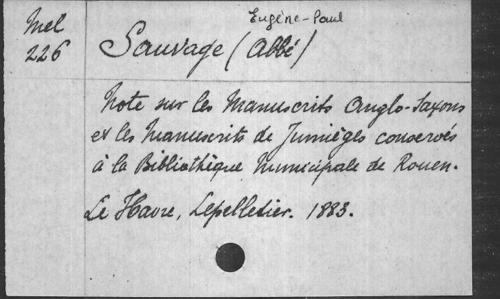 Mel
226
Eugène-Paul
Sauvage (Abbé)
Note sur les Manuscrits Anglo-Saxons
et les Manuscrits de Jumièges conservés
à la Bibliothèque Municipale de Rouen.
Le Havre, Lepelletier. 1883.